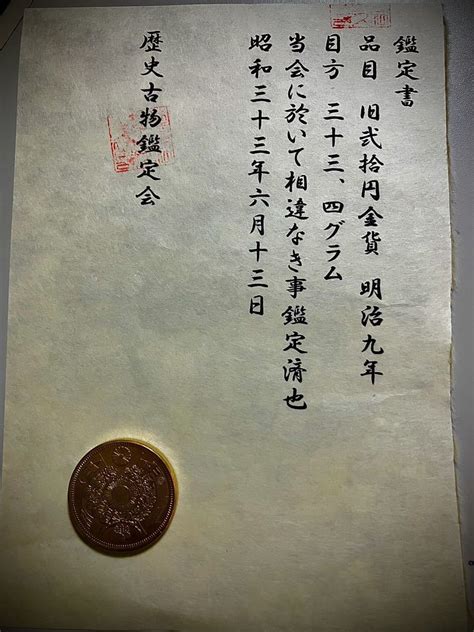 鑑定書
品目 旧弐拾円金貨 明治九年
目方 三十三、四グラム
当会に於いて相違なき事鑑定済也
昭和三十三年六月十三日
歴史古物鑑定会